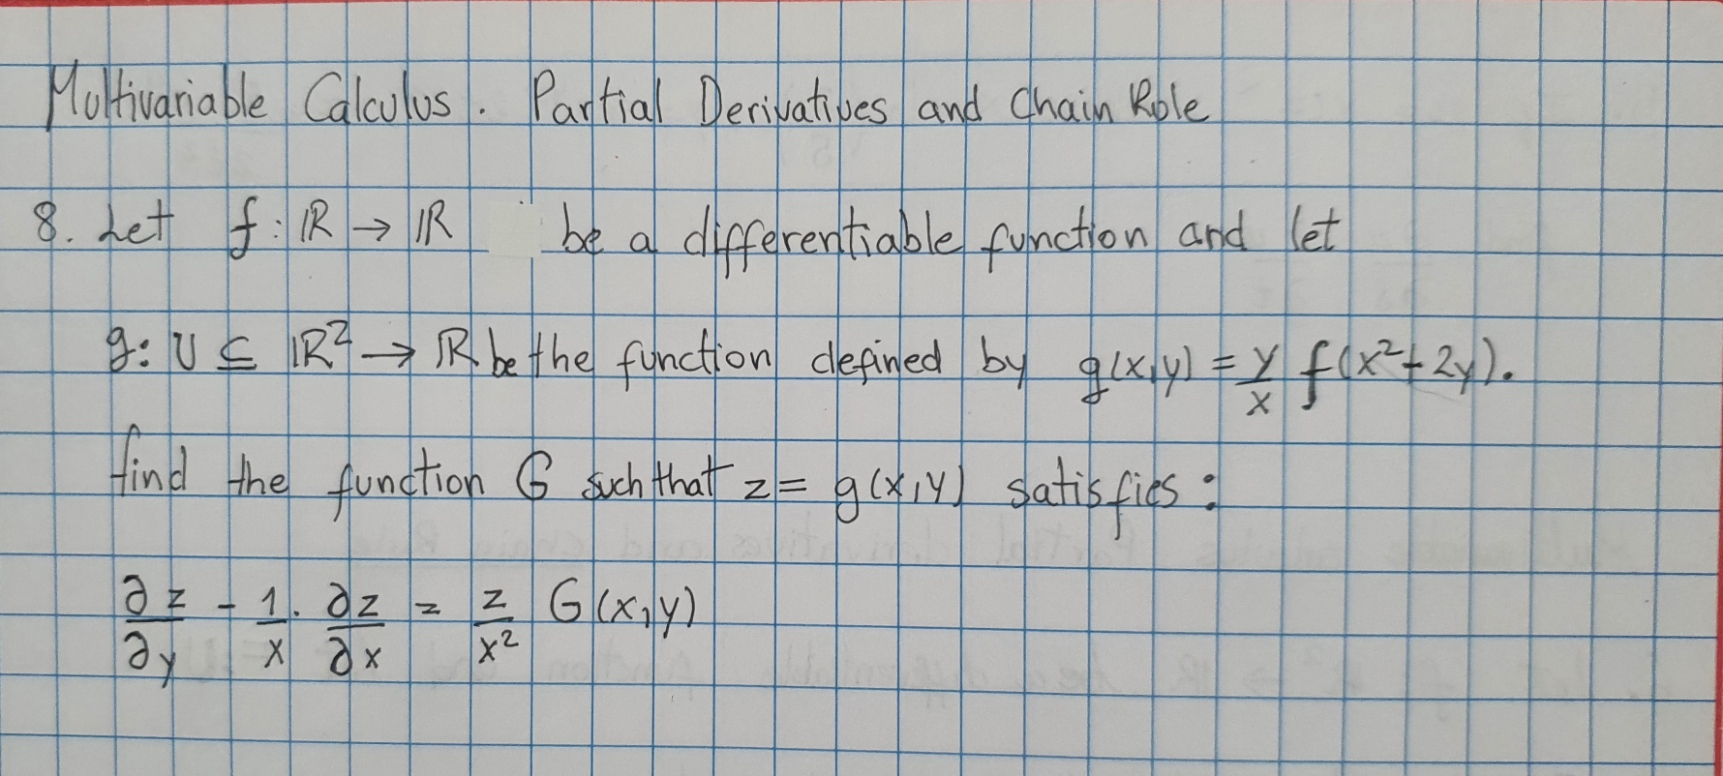 Multivariable Calculus. Partial Derivatives and Chain Rule
8. Let f: ℝ → ℝ be a differentiable function and let
g: U ⊆ ℝ² → ℝ be the function defined by g(x,y) = y/x f(x²+2y).
find the function G such that z = g(x,y) satisfies:
∂z/∂y - 1/x · ∂z/∂x = z/x² G(x,y)